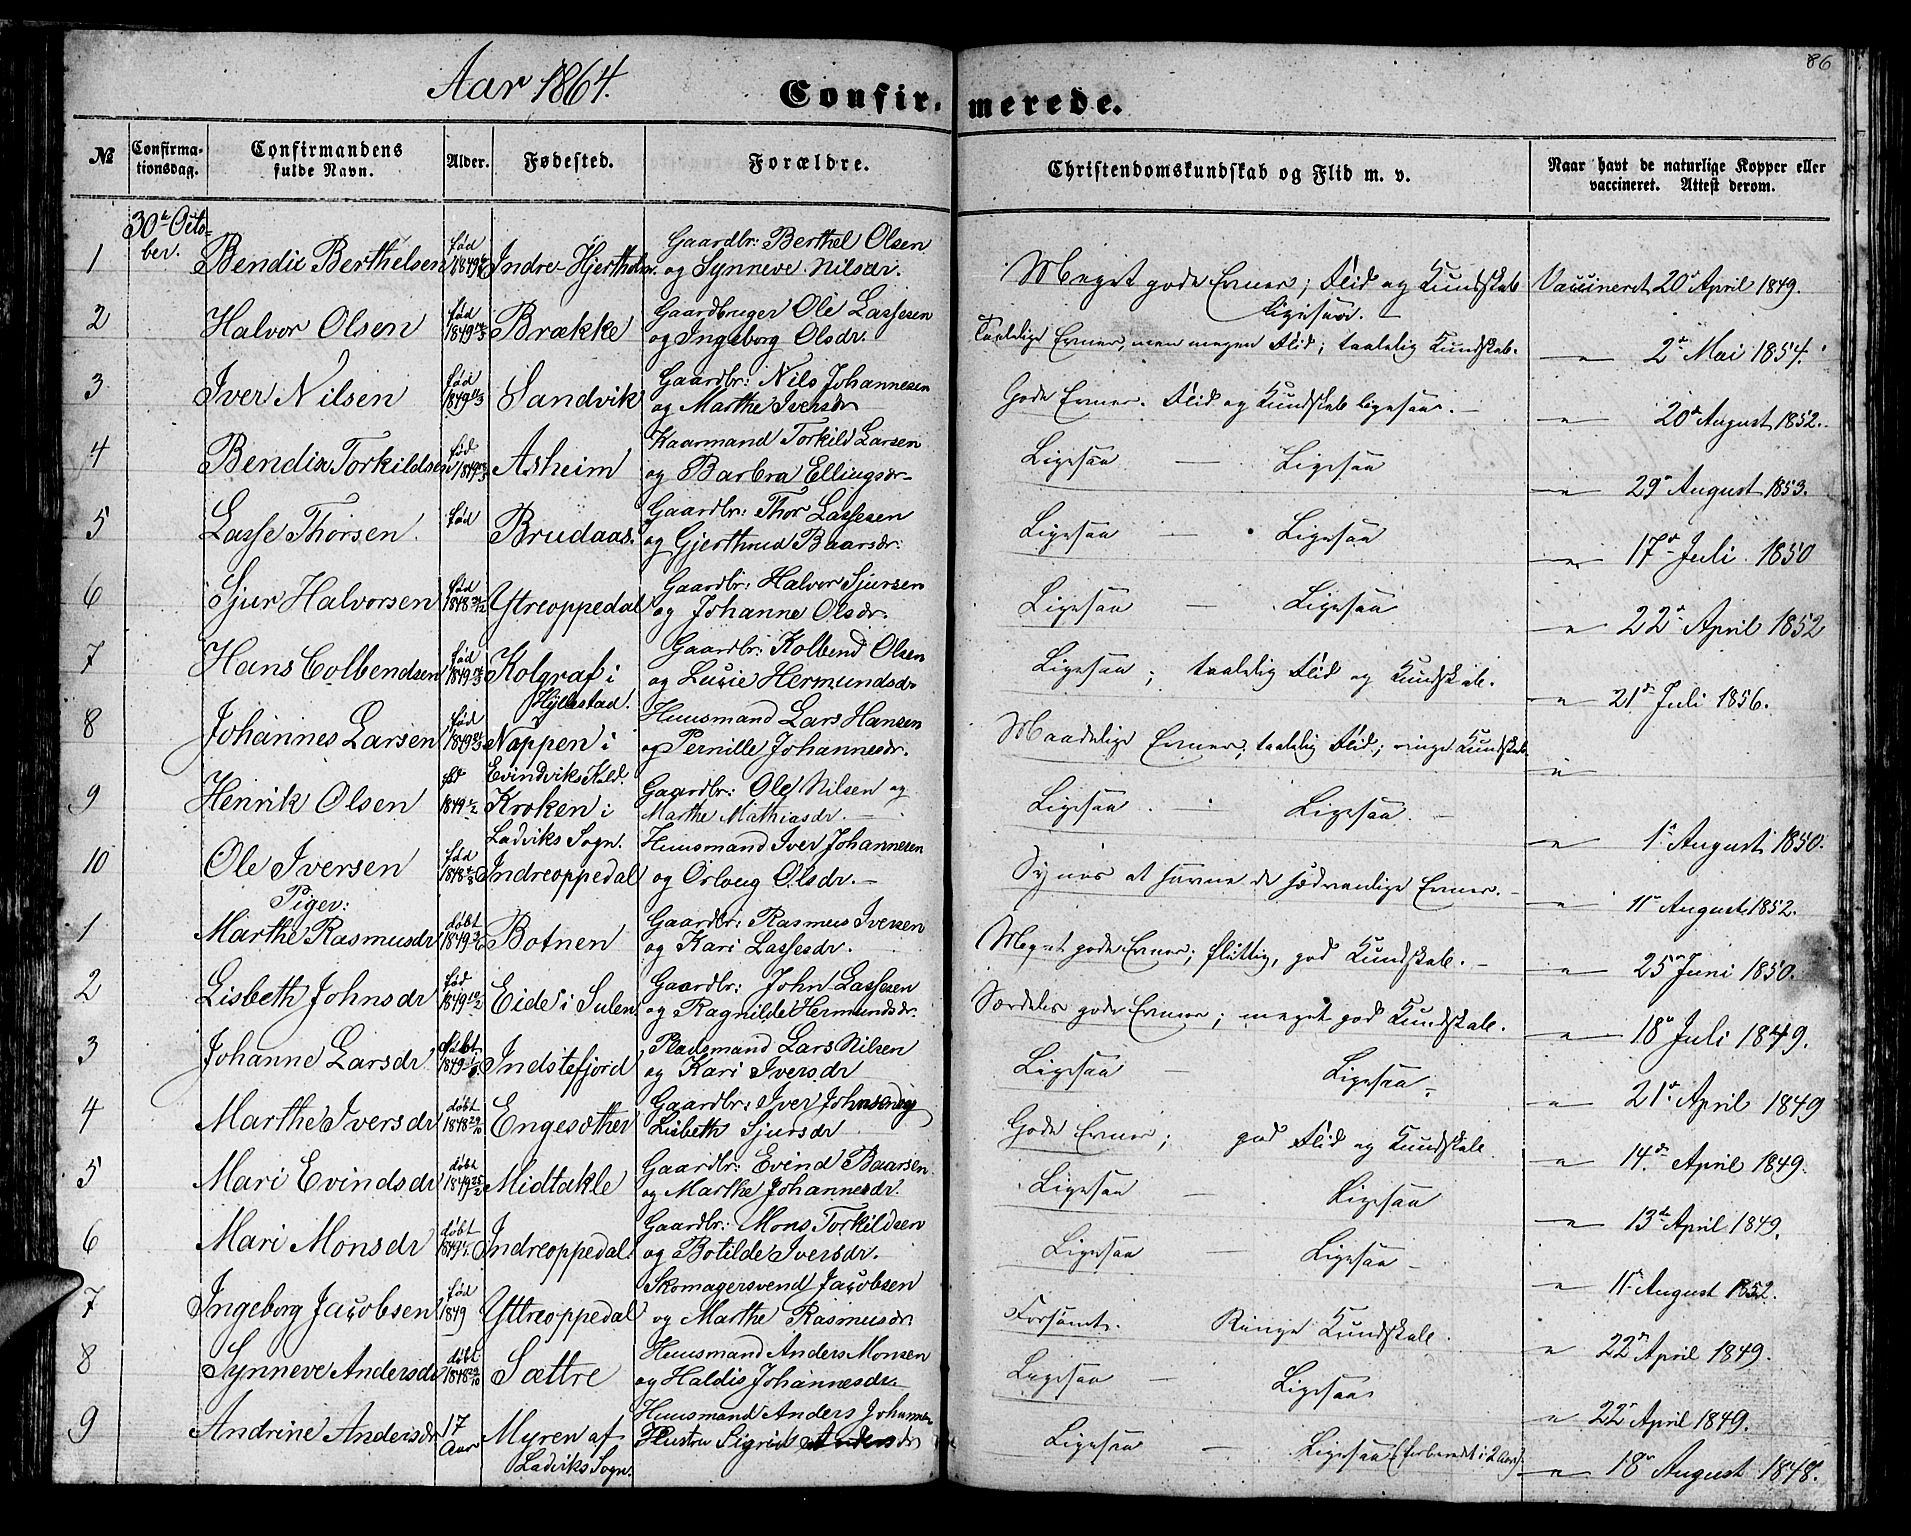 86
Aar 1864.
Confirmerede.
№ Confirmationsdag. Confirmandens fulde Navn. Alder. Fødested. Forældre. Christendomskundskab og Flid m. v. Naar havt de naturlige Kopper eller vaccineret. Attest derom.
30te October.
1 Bendix Berthelsen født 1849 Indre-Hjertholm. Gaardbr: Berthel Olsen og Synneve Nilsdr. Meget gode Evner; Flid og Kundskab ligesaa. Vaccineret 20de April 1849.
2 Halvor Olsen født 1849 Brække Gaardbruger Ole Lassesen og Ingeborg Olsdr. Taalelige Evner, men megen Flid; taalelig Kundskab. — " — 2de Mai 1854.
3 Iver Nilsen født 1849 Sandvik Gaardbr: Nils Johannesen og Marthe Iversdr Gode Evner. Flid og Kundskab ligesaa. — " — 20de August 1852.
4 Bendix Torkildsen født 1849 Asheim Kaarmand Torkild Larsen og Barbra Ellingsdr Ligesaa — Ligesaa — " — 29de August 1853.
5 Lasse Thorsen født Brudaas. Gaardbr: Thor Lassesen og Gjerthrud Baarsdr. Ligesaa — Ligesaa — " — 17de Juli 1850
6 Sjur Halvorsen født 1848 Ytreoppedal Gaardbr: Halvor Sjursen og Johanne Olsdr. Ligesaa — Ligesaa — " — 22de April 1852
7 Hans Colbendsen født 1849 Kolgraf i Hyllestad. Gaardbr: Kolbend Olsen og Lucie Hermundsdr Ligesaa; taalelig Flid og Kundskab. — " — 21de Juli 1856.
8 Johannes Larsen født 1849 Nappen i Evindviks Kald. Huusmand Lars Hansen og Pernille Johannesdr. Maadelige Evner, taalelig Flid; ringe Kundskab "
9 Henrik Olsen født 1849 Kroken i Ladviks Sogn. Gaardbr: Ole Nilsen og Marthe Mathiasdr. Ligesaa. — Ligesaa. — " — 1ste August 1850.
10 Ole Iversen født 1848 Indreoppedal Huusmand Iver Johannesen og Orloug Olsdr. Synes at savne de sædvanlige Evner. — " — 11te August 1852.
Piger:
1 Marthe Rasmusdr døbt 1849 Botnen Gaardbr: Rasmus Iversen og Kari Lassesdr. Meget gode Evner; flittig, god Kundskab. — " — 25de Juni 1850.
2 Lisbeth Johnsdr født 1849 10/2 Eide i Sulen Gaardbr: John Lassesen og Ragnilde Hermundsdr. Særdeles gode Evner; meget god Kundskab. — " — 18de Juli 1849.
3 Johanne Larsdr døbt 1849 Indstefjord Pladsmand Lars Nilsen og Kari Iversdr Ligesaa — Ligesaa — " — 21de April 1849
4 Marthe Iversdr døbt 1848 29/10 Engesæther Gaardbr: Iver Johnsen og Lisbeth Sjursdr Gode Evner; god Flid og Kundskab. — " — 14de April 1849.
5 Mari Evindsdr døbt 1849 25/2 Midtakle Gaardbr: Evind Baarsen og Marthe Johannesdr. Ligesaa — Ligesaa — " — 13de April 1849.
6 Mari Monsdr døbt 1849 Indreoppedal Gaardbr: Mons Torkildsen og Botilde Iversdr. Ligesaa — Ligesaa — " — 11te August 1852.
7 Ingeborg Jacobsen født 1849 Yttreoppedal Skomagersvend Jacobsen og Marthe Rasmusdr. Forsømt. Ringe Kundskab. " 22de April 1849.
8 Synneve Andersdr døbt 1848 29/10 Sættre Huusmand Anders Monsen og Haldis Johannesdr Ligesaa — Ligesaa " 22de April 1849.
9 Andrine Andersdr 17 Aar Myren af Ladviks Sogn. Huusmand Anders Johannes Hustru Sigrid Andersdr Ligesaa — Ligesaa (forberedt i 2 Aar). — " — 18de August 1848.